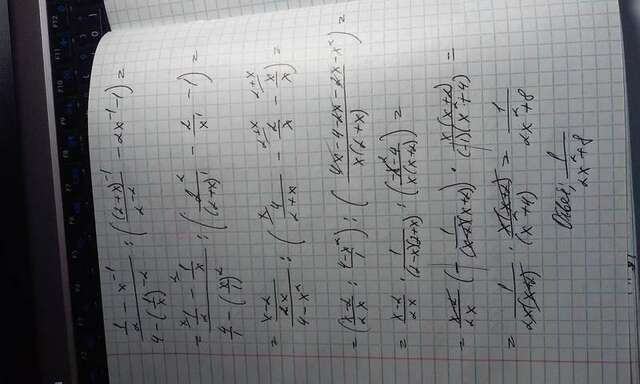 (1/2 - x⁻¹)/(4 - (1/x)⁻²) : ((2+x)⁻¹/2⁻² - 2x⁻¹ - 1) =
= (ˣ1/2 - ²1/x)/(4/1 - (x/1)²) : (2²/(2+x)¹ - 2/x¹ - 1) =
= ((x-2)/2x)/(4-x²) : (ˣ4/(2+x) - ²⁺ˣ2/x - ²⁺ˣx/x) =
= ((x-2)/2x : (4-x²)/1) : ((4x-4-2x-2x-x²)/(x(2+x))) =
= (x-2)/2x · 1/((2-x)(2+x)) : ((-x²-4)/(x(x+2))) =
= (x-2)/2x (- 1/((x-2)(x+2))) · x(x+2)/((-1)(x²+4)) =
= 1/(2x(x+2)) · x(x+2)/(x²+4) = 1/(2x²+8)
Ответ: 1/(2x²+8)